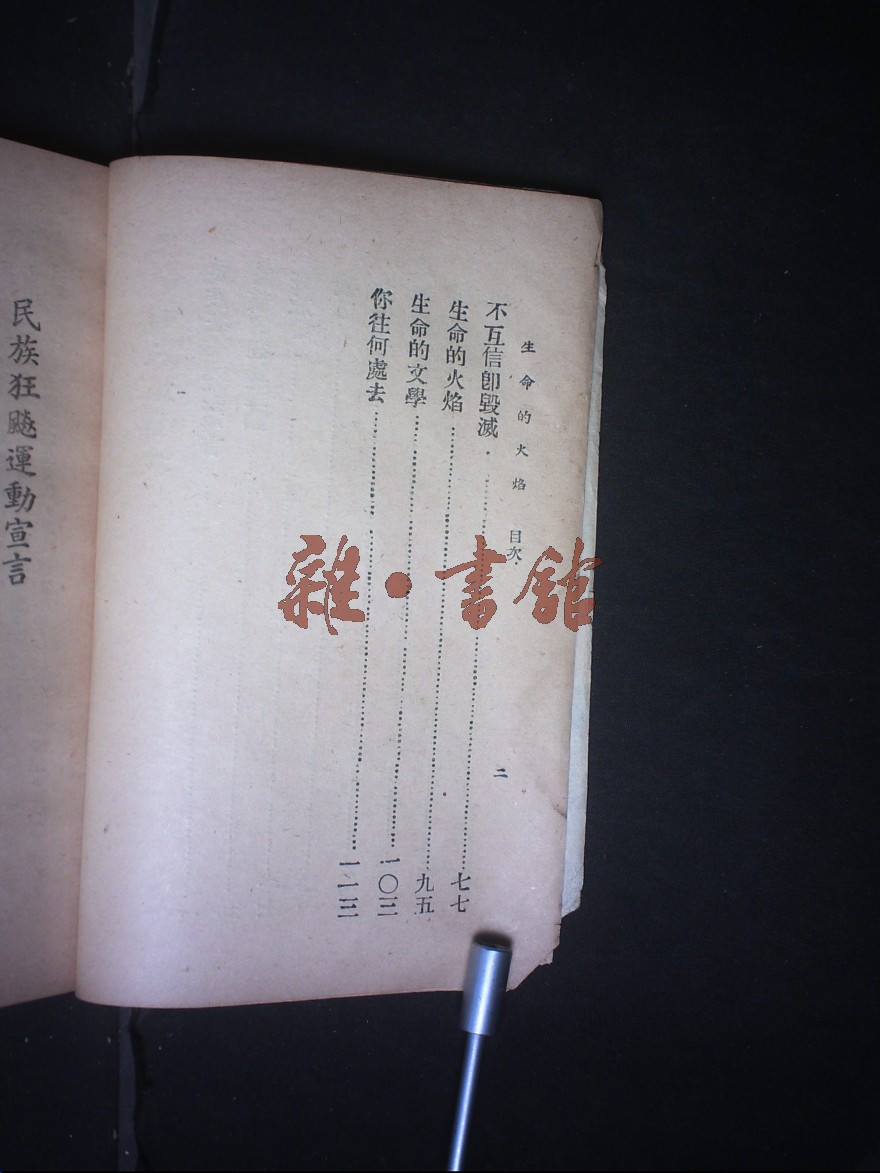 生命的火焰 目次 二
不互信卽毀滅…………七七
生命的火焰…………九五
生命的文學…………一〇三
你往何處去…………一一三
民族狂飈運動宣言
雜·書館